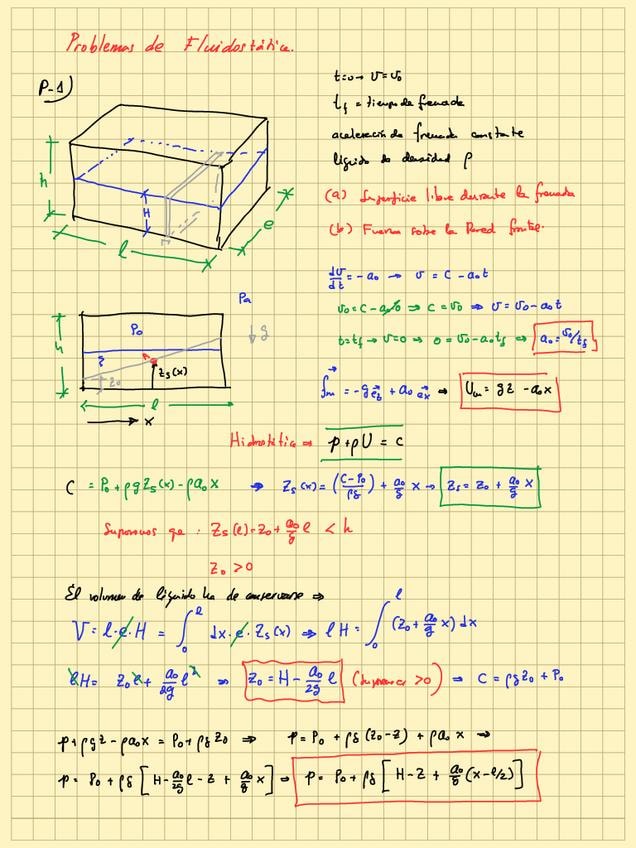 Problemas de Fluidostática.
P-1)
t=0 → v=v₀
t_f = tiempo de frenada
aceleración de frenada constante
líquido de densidad ρ
(a) Superficie libre durante la frenada
(b) Fuerza sobre la Pared frontal.
h
H
l
e
dv/dt = -a₀ → v = C - a₀t
v₀ = C - a₀·0 ⇒ C = v₀ ⇒ v = v₀ - a₀t
t=t_f → v=0 ⇒ 0 = v₀ - a₀t_f ⇒ a₀ = v₀/t_f
Pa
P₀
g
h
z₀
z_s(x)
l
x
f_m = -g e_z + a₀ e_x ⇒ U_m = gz - a₀x
Hidrostática ⇒ p + ρU = C
C = P₀ + ρg z_s(x) - ρa₀x ⇒ z_s(x) = ((C-P₀)/ρg) + a₀/g x → z_s = z₀ + a₀/g x
Suponemos que : z_s(l) = z₀ + a₀/g l < h
z₀ > 0
El volumen de líquido ha de conservarse ⇒
V = l·e·H = ∫₀ˡ dx·e·z_s(x) ⇒ lH = ∫₀ˡ (z₀ + a₀/g x) dx
lH = z₀l + a₀/2g l² ⇒ z₀ = H - a₀/2g l (suponemos >0) ⇒ C = ρg z₀ + P₀
p + ρgz - ρa₀x = P₀ + ρg z₀ ⇒ p = P₀ + ρg (z₀-z) + ρa₀x ⇒
p = P₀ + ρg [H - a₀/2g l - z + a₀/g x] ⇒ p = P₀ + ρg [H - z + a₀/g (x - l/2)]